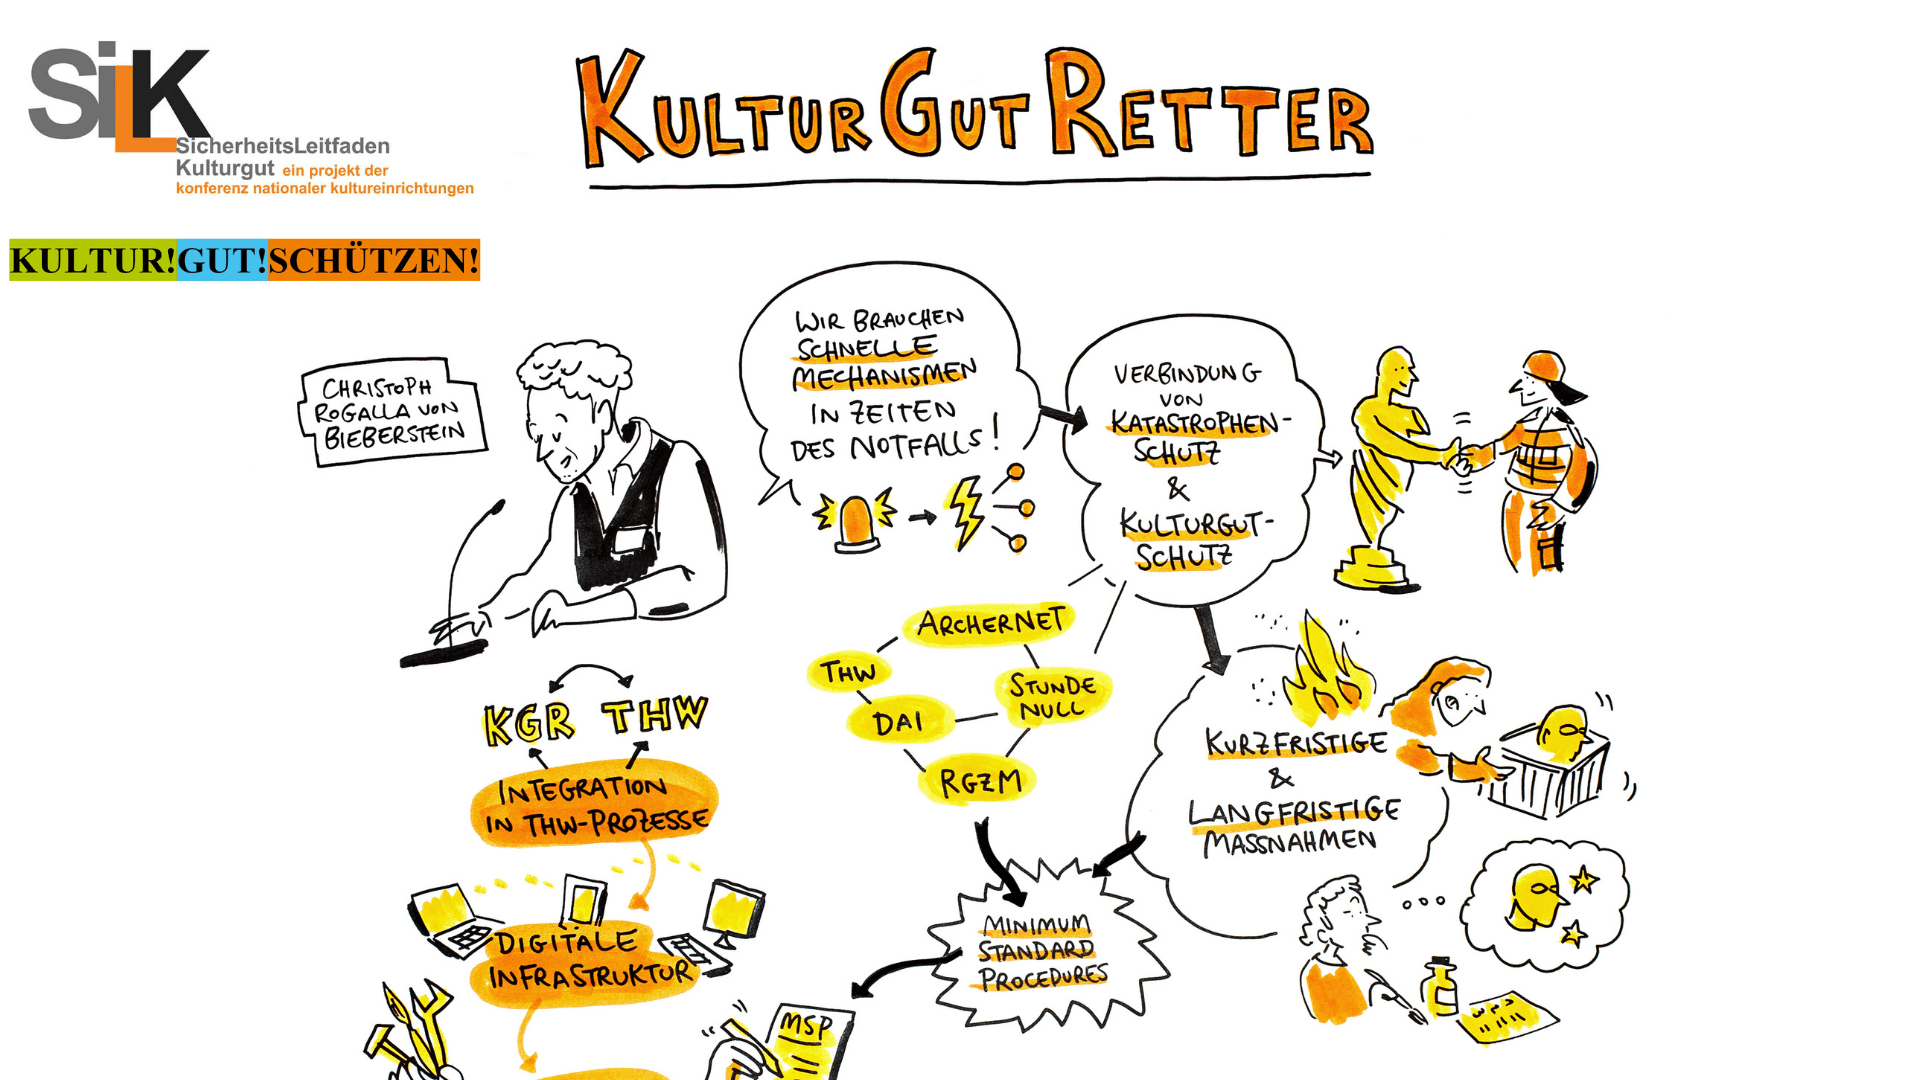 SiLK
SicherheitsLeitfaden
Kulturgut ein projekt der
konferenz nationaler kultureinrichtungen
KULTUR!GUT!SCHÜTZEN!
KULTURGUTRETTER
CHRISTOPH
ROGALLA VON
BIEBERSTEIN
WIR BRAUCHEN
SCHNELLE
MECHANISMEN
IN ZEITEN
DES NOTFALLS!
VERBINDUNG
VON
KATASTROPHEN-
SCHUTZ
&
KULTURGUT-
SCHUTZ
ARCHERNET
THW
STUNDE
NULL
DAI
RGZM
KGR THW
INTEGRATION
IN THW-PROZESSE
DIGITALE
INFRASTRUKTUR
KURZFRISTIGE
&
LANGFRISTIGE
MASSNAHMEN
MINIMUM
STANDARD
PROCEDURES
MSP